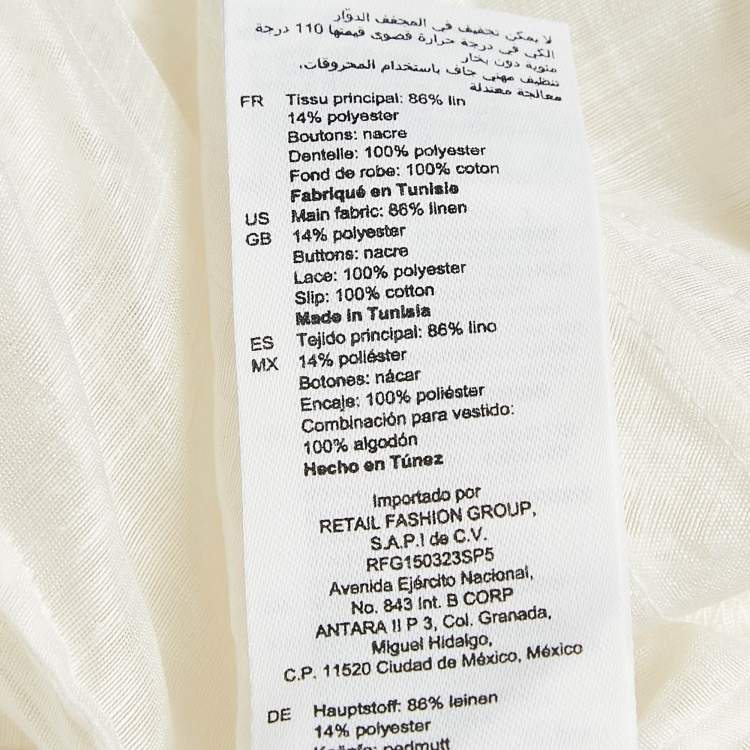 لا يمكن تجفيف في المجفف الدوّار
الكي في درجة حرارة قصوى قيمتها 110 درجة
مئوية دون بخار
تنظيف مهني جاف باستخدام المحروقات،
معالجة معتدلة
FR Tissu principal: 86% lin
14% polyester
Boutons: nacre
Dentelle: 100% polyester
Fond de robe: 100% coton
Fabriqué en Tunisie
US Main fabric: 86% linen
GB 14% polyester
Buttons: nacre
Lace: 100% polyester
Slip: 100% cotton
Made in Tunisia
ES Tejido principal: 86% lino
MX 14% poliéster
Botones: nácar
Encaje: 100% poliéster
Combinación para vestido:
100% algodón
Hecho en Túnez
Importado por
RETAIL FASHION GROUP,
S.A.P.I de C.V.
RFG150323SP5
Avenida Ejército Nacional,
No. 843 Int. B CORP
ANTARA II P 3, Col. Granada,
Miguel Hidalgo,
C.P. 11520 Ciudad de México, México
DE Hauptstoff: 86% leinen
14% polyester
Knöpfe: perlmutt